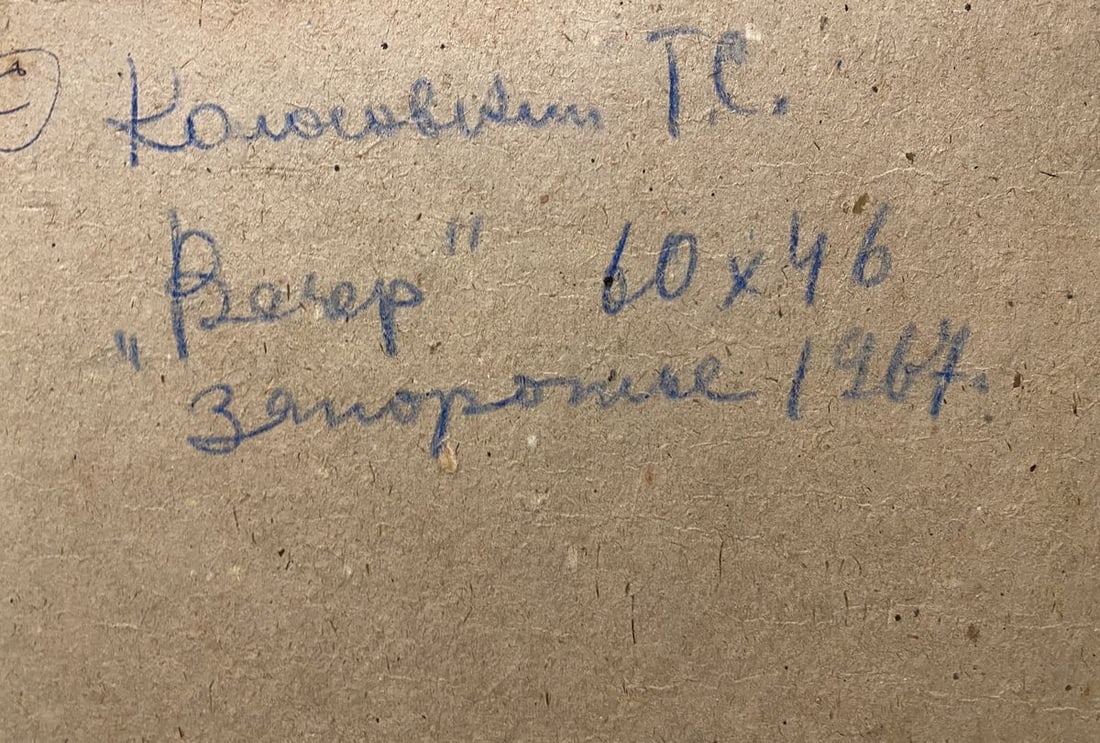 Колосовский Г.С.
„Вечер" 60х46
Запорожье 1967г.